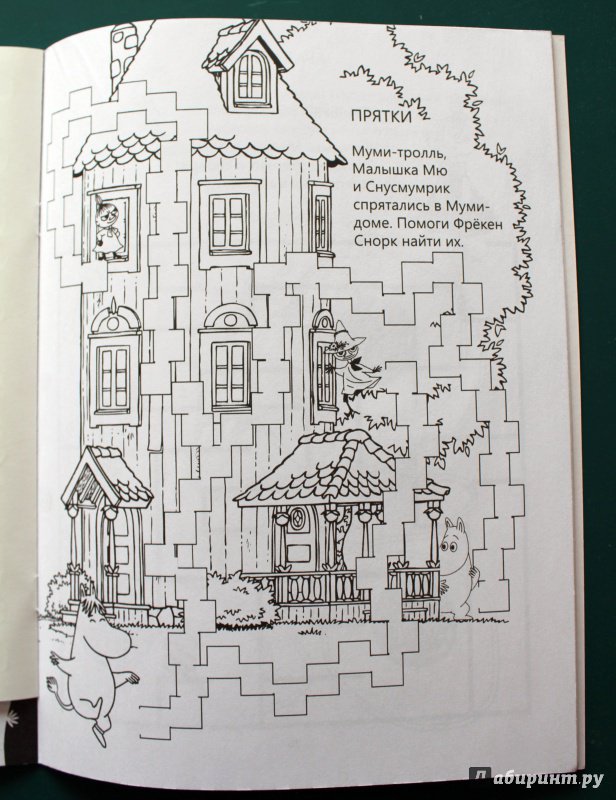 ПРЯТКИ
Муми-тролль,
Малышка Мю
и Снусмумрик
спрятались в Муми-
доме. Помоги Фрёкен
Снорк найти их.
Лабиринт.ру